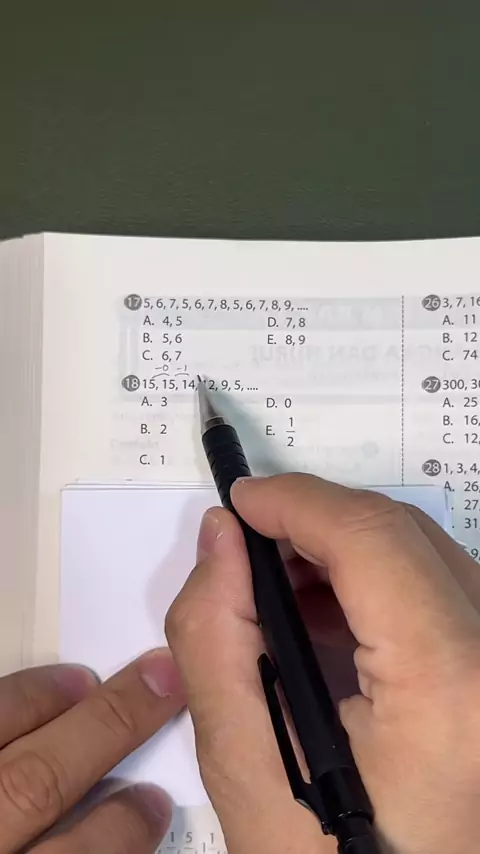 17 5, 6, 7, 5, 6, 7, 8, 5, 6, 7, 8, 9, ....
A. 4, 5
D. 7, 8
B. 5, 6
E. 8, 9
C. 6, 7
-0 -1
18 15, 15, 14, 12, 9, 5, ....
A. 3
D. 0
B. 2
E. 1/2
C. 1
26 3, 7, 16
A. 11
B. 12
C. 74
27 300, 30
A. 25
B. 16,
C. 12,
28 1, 3, 4,
A. 26,
27,
31